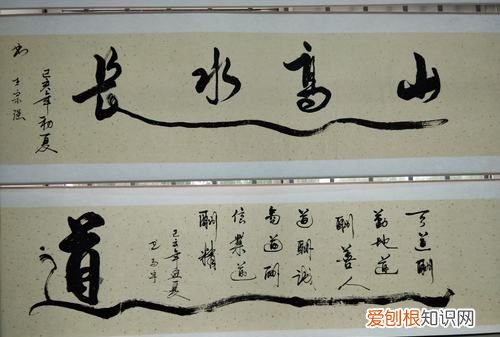 山高水長
己亥年初夏
王宗强
天道酬
勤地道
酬善人
道酬诚
商道酬
信業道
酬精
己亥年孟夏
道
爱刨根知识网
www.baogenzhishi.com